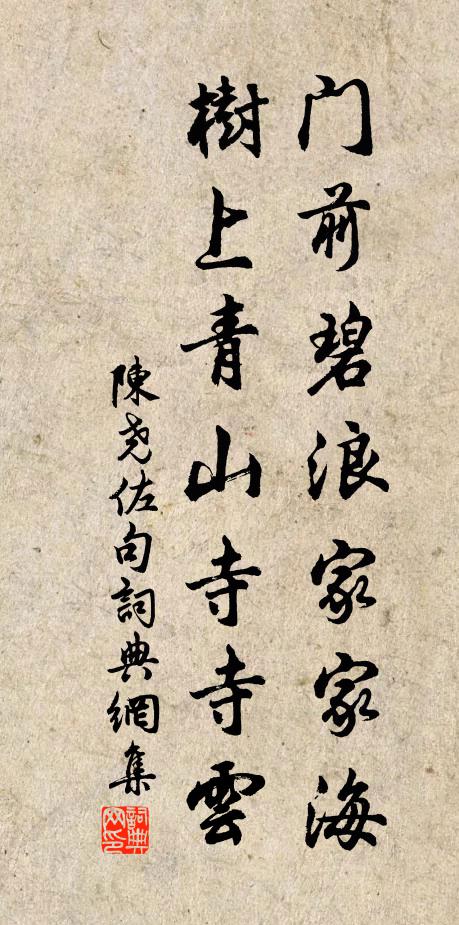 门前碧浪家家海
樹上青山寺寺雲
陳尧佐句詞典網集
詞典网印